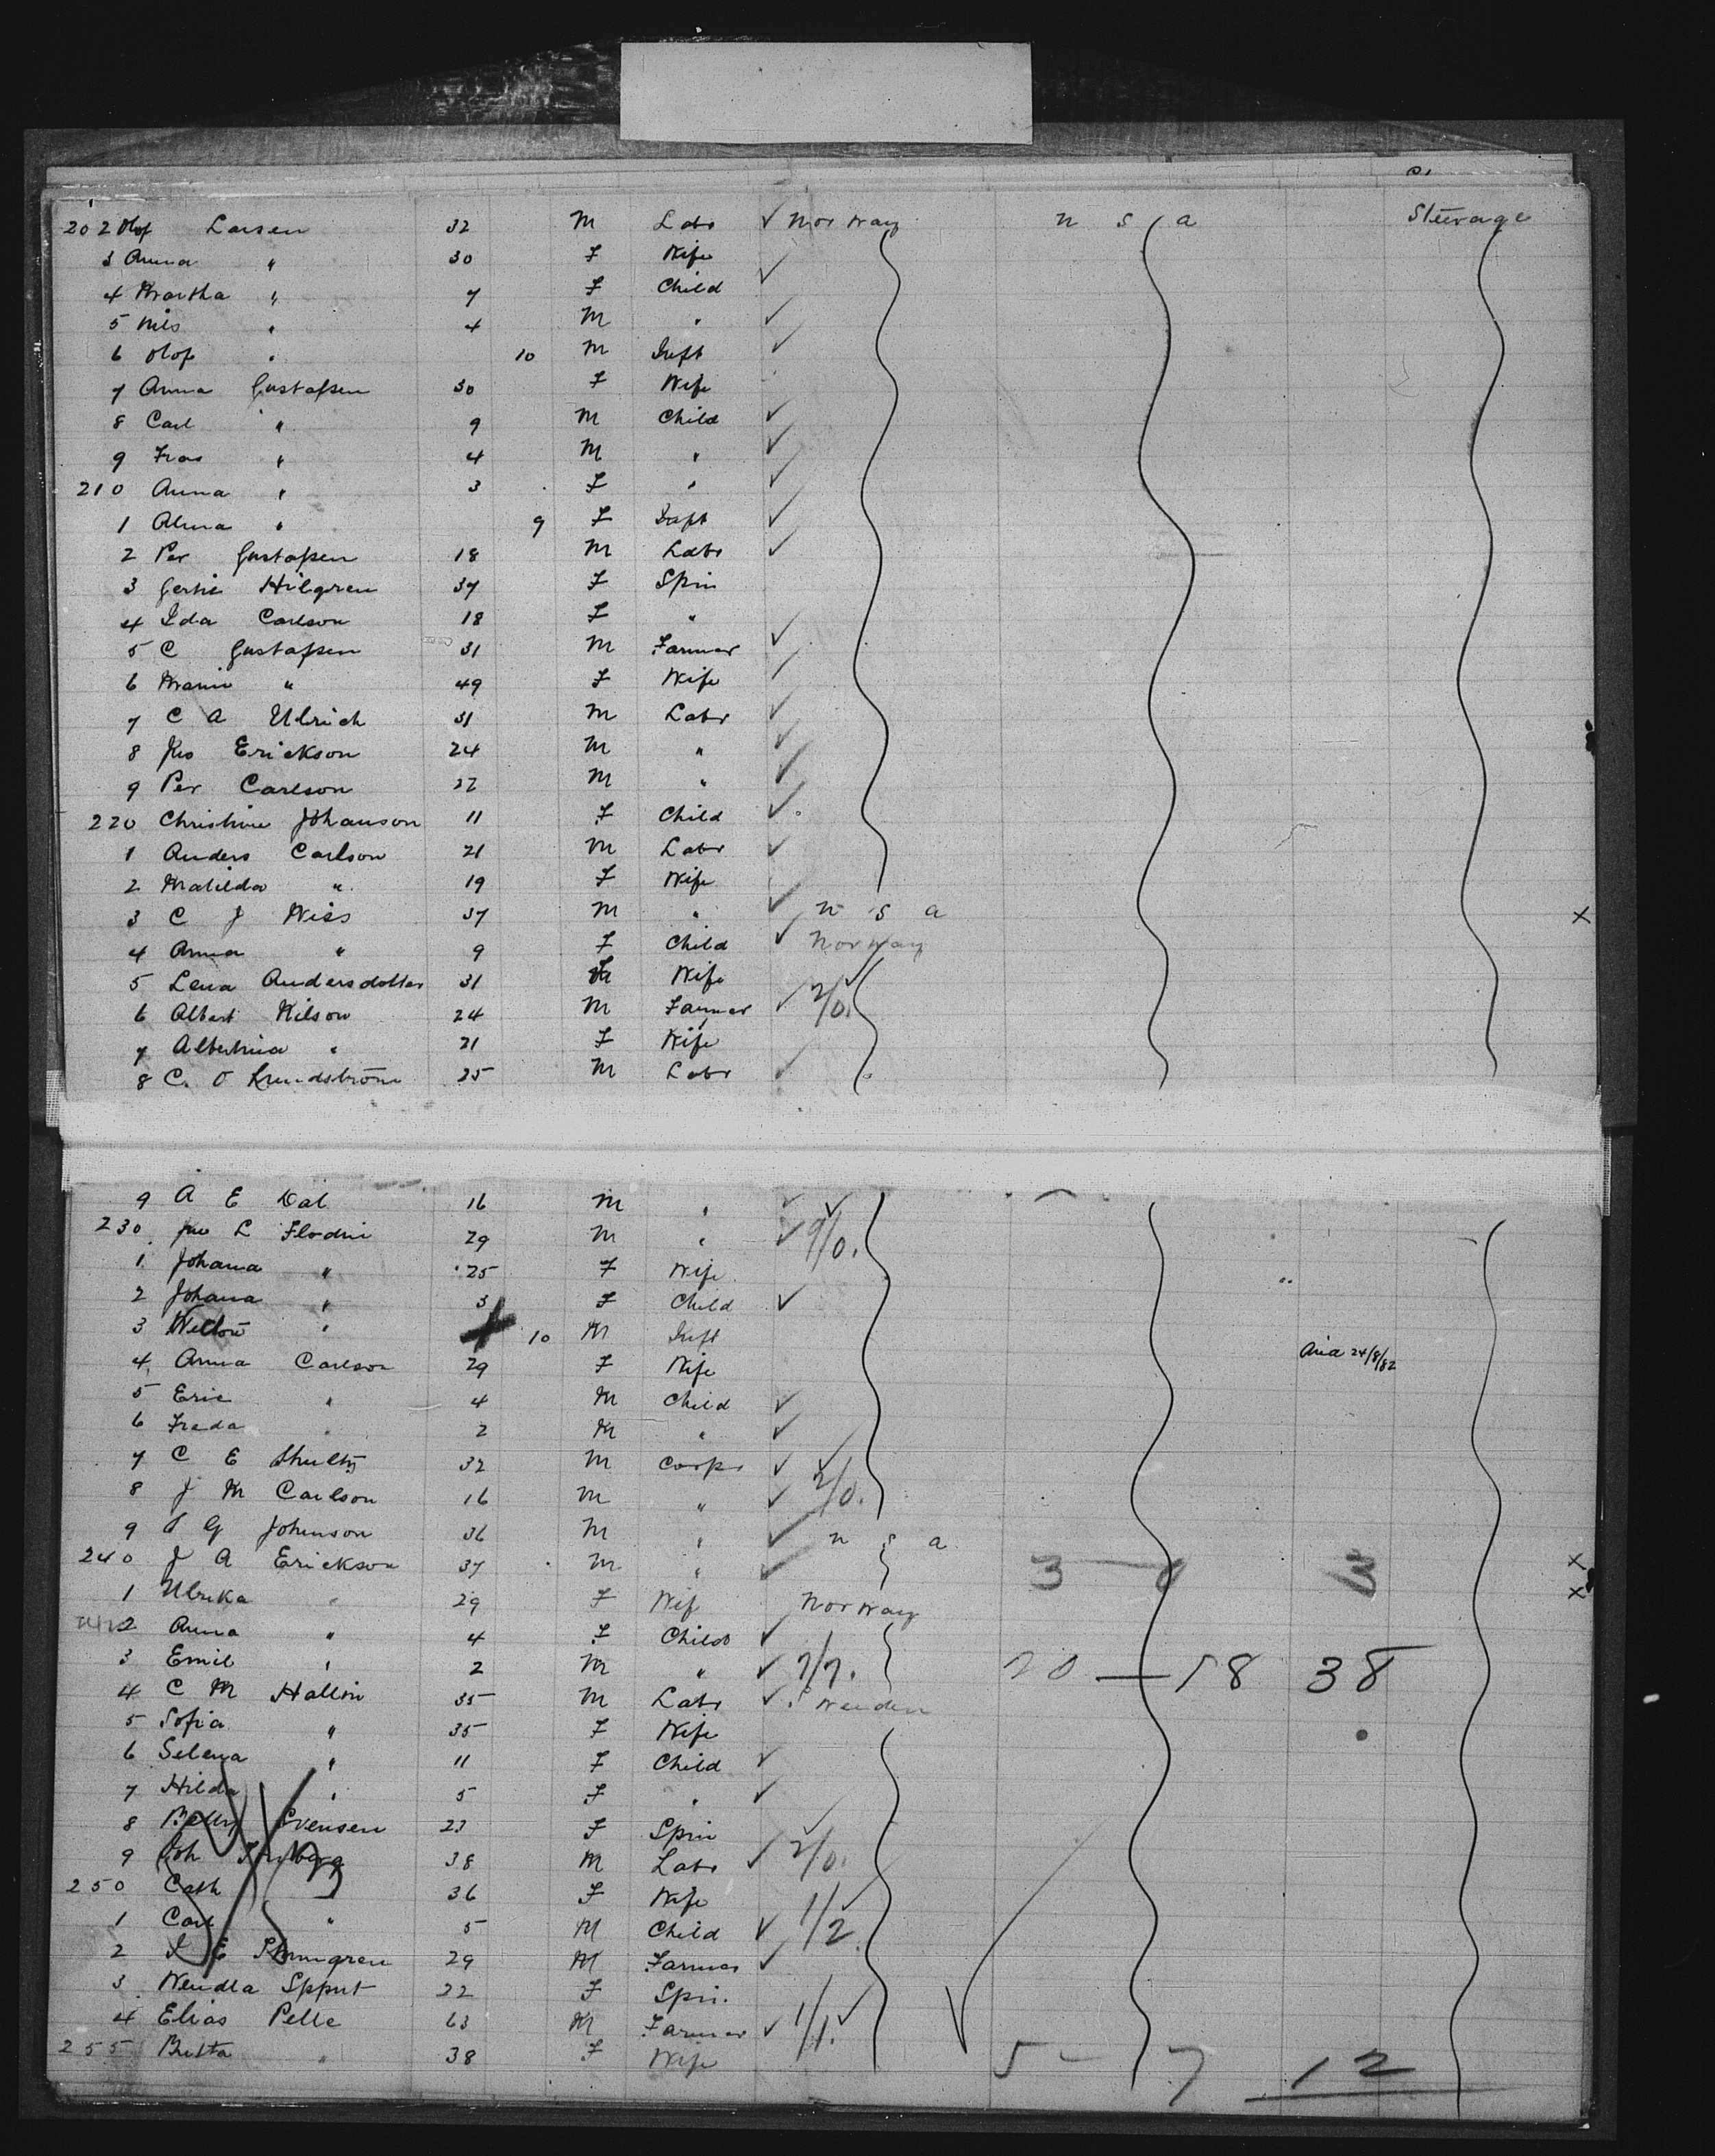 202 Olof Larsen 32 M Labr ✓ Norway U S A Steerage
3 Anna " 30 F Wife
4 Martha " 7 F Child ✓
5 Nils " 4 M " ✓
6 Olof " 10 M Inft ✓
7 Anna Gustafsen 30 F Wife
8 Carl " 9 M Child ✓
9 Fras " 4 M " ✓
210 Anna " 3 F " ✓
1 Alma " 9 F Inft ✓
2 Per Gustafsen 18 M Labr ✓
3 Gertie Hilgren 37 F Spin
4 Ida Carlson 18 F "
5 C Gustafsen 31 M Farmer ✓
6 " 49 F Wife
7 C A Ulrich 31 M Labr ✓
8 Jno Erickson 24 M " ✓
9 Per Carlson 22 M " ✓
220 Christine Johanson 11 F Child ✓
1 Anders Carlson 21 M Labr ✓
2 Matilda " 19 F Wife
3 C J Wiss 37 M " ✓ U S A X
4 Anna " 9 F Child ✓ Norway
5 Lena Andersdotter 31 F Wife
6 Albert Nilson 24 M Farmer ✓ 2/0.
7 Albertina " 21 F Wife
8 C. O Lundström 25 M Labr ✓
9 A E Dal 16 M " ✓
230 Jno L Flodin 29 M " ✓ 9/0.
1 Johana " 25 F Wife
2 Johana " 3 F Child ✓
3 " 10 M Inft
4 Anna Carlson 29 F Wife 24/8/82
5 Eric " 4 M Child ✓
6 Freda " 2 M " ✓
7 C E Shultz 32 M Carpr ✓
8 J M Carlson 16 M " ✓ 2/0.
9 G Johnson 36 M " ✓ U S A
240 J A Erickson 37 M " ✓ 3 3 X
1 Ulrika " 29 F Wif Norway X
2 Anna " 4 F Child ✓
3 Emil " 2 M " ✓ 7/7. 20 — 18 38
4 C M Hallin 35 M Labr ✓ Sweeden
5 Sofia " 35 F Wife
6 Selena " 11 F Child ✓
7 Hilda " 5 F " ✓
8 Betty Svensen 23 F Spin
9 Joh 38 M Labr ✓ 2/0.
250 Cath 36 F Wife
1 Carl " 5 M Child ✓ 1/2
2 E 29 M Farmer ✓
3 Wendla Spput 22 F Spin.
4 Elias Pelle 63 M Farmer ✓ 1/1.
255 Britta " 38 F Wife 5 – 7 12